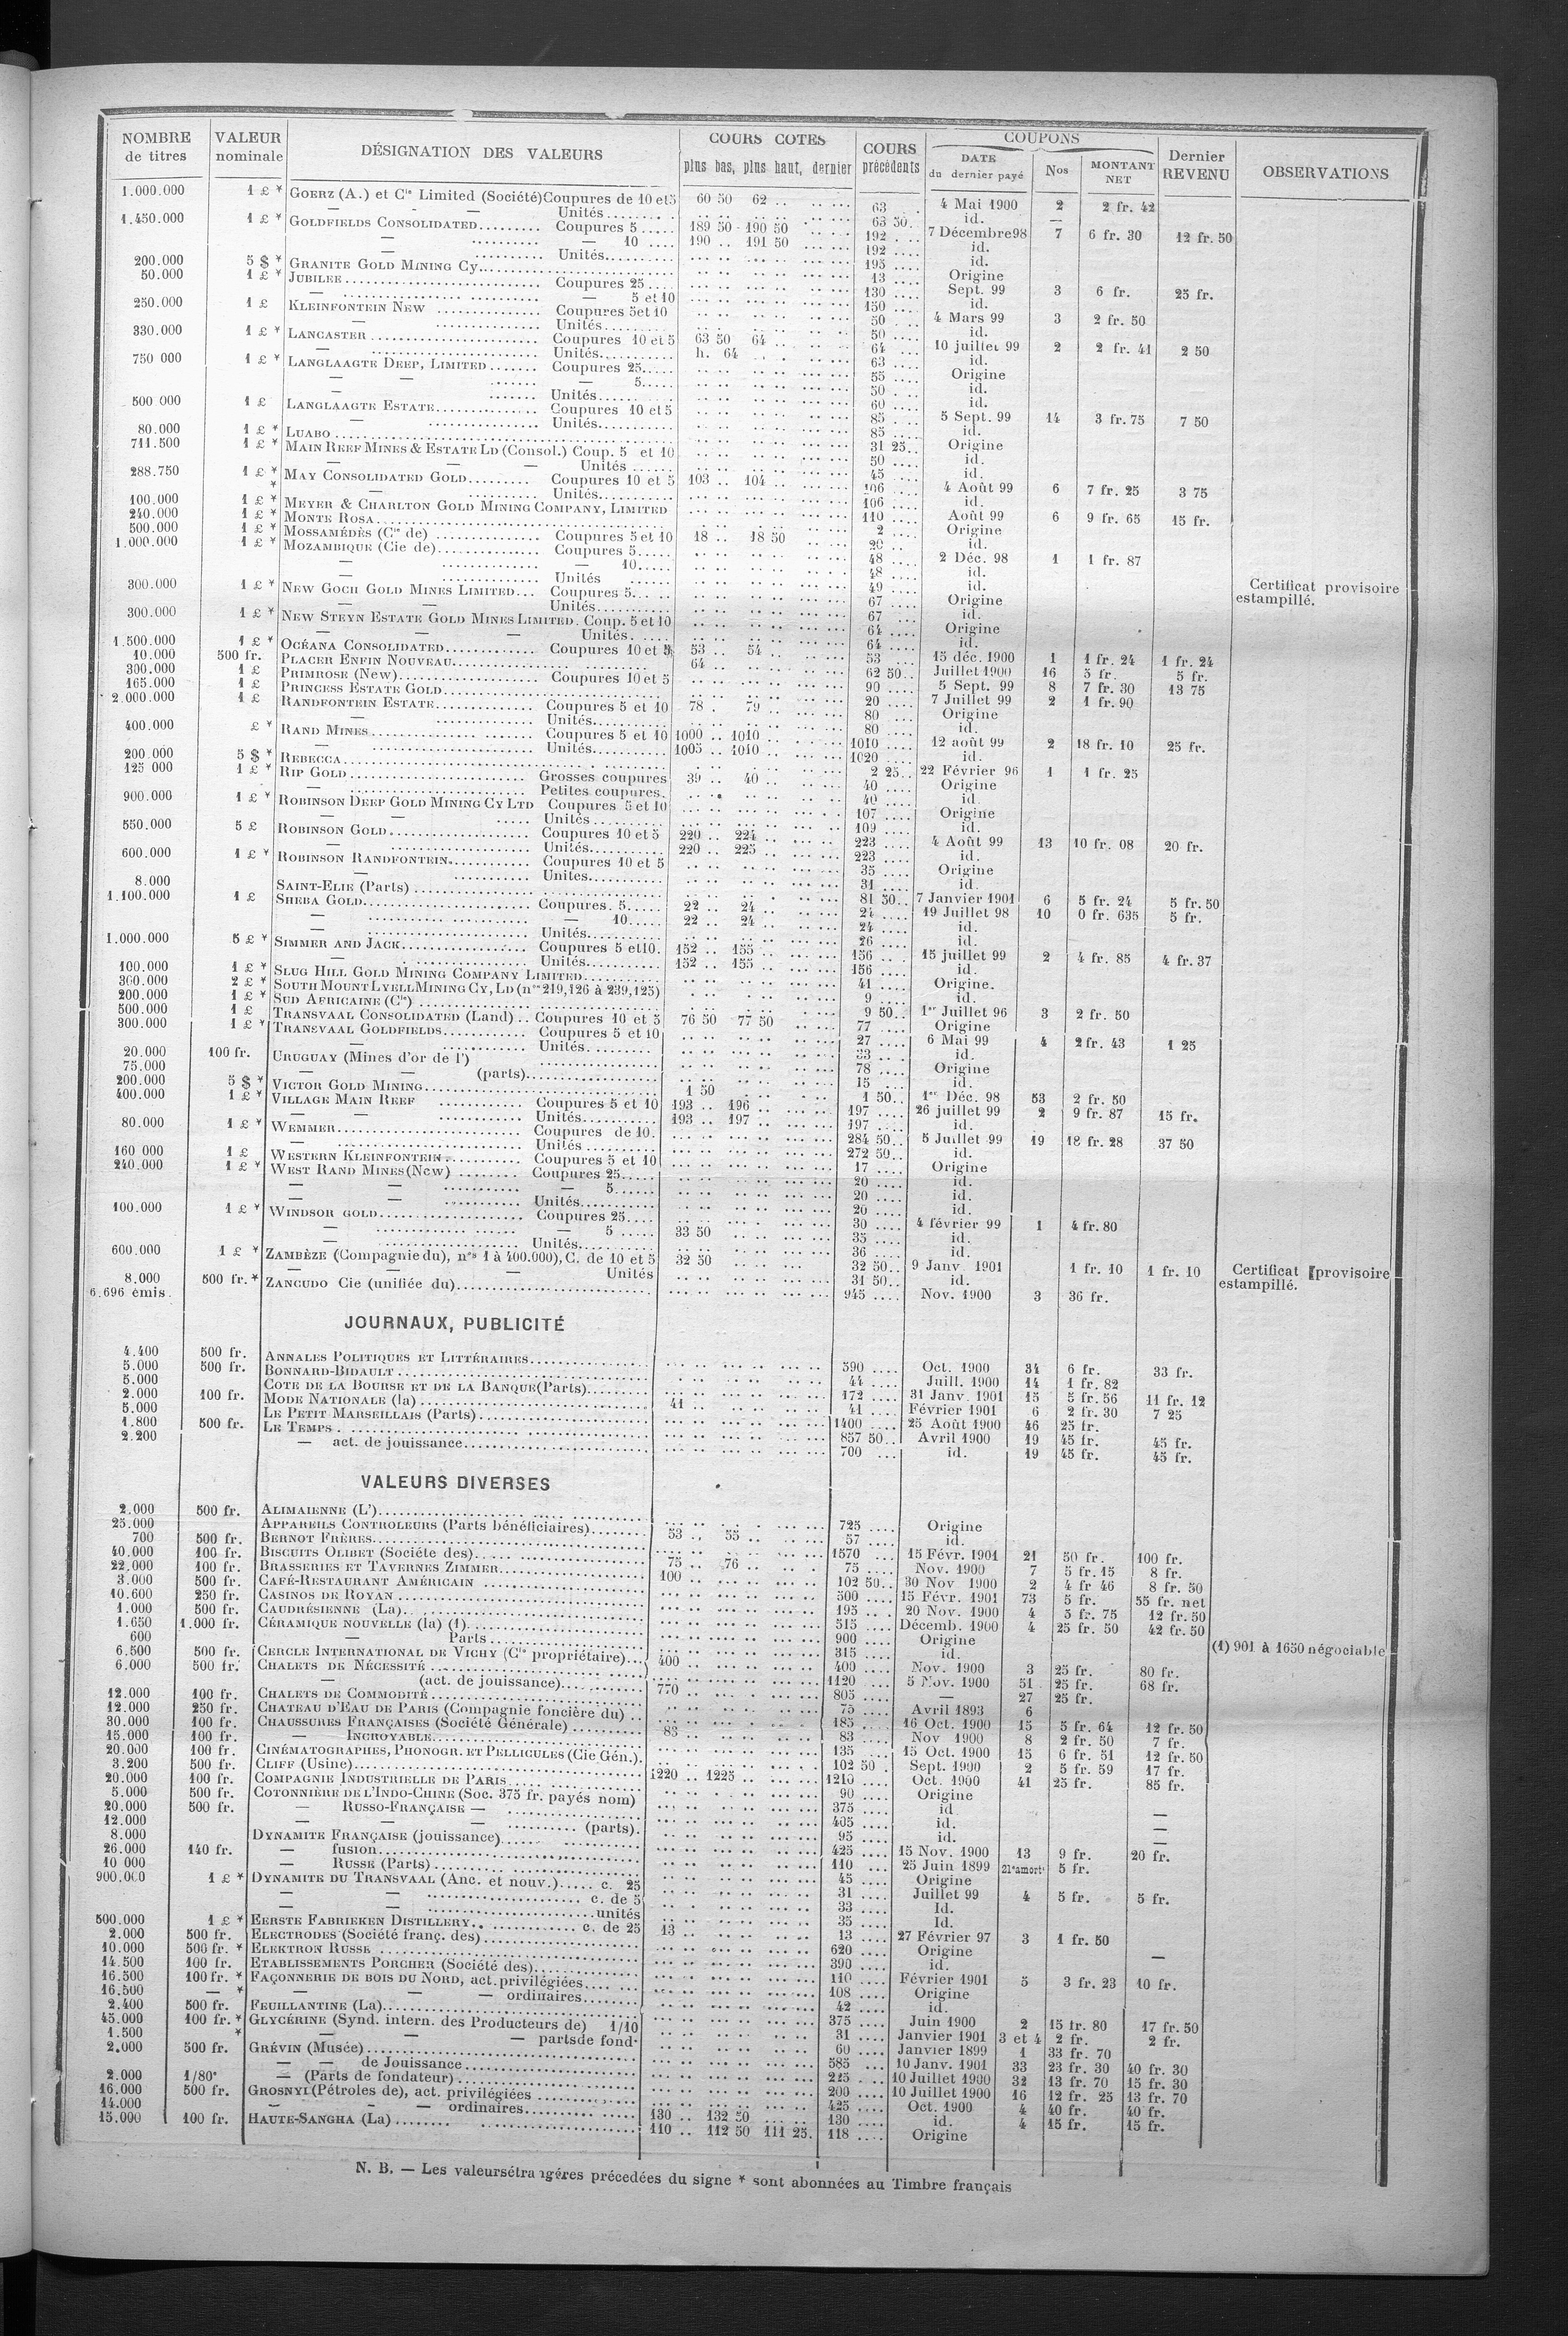 NOMBRE de titres VALEUR nominale DÉSIGNATION DES VALEURS COURS COTÉS plus bas, plus haut, dernier COURS précédents COUPONS DATE du dernier payé Nos MONTANT NET Dernier REVENU OBSERVATIONS
1.000.000 1 £ * GOERZ (A.) et Cie Limited (Société) Coupures de 10 et 5 60 50 62 .. 63 4 Mai 1900 2 2 fr. 42
— — — Unités 63 50 id. —
1.450.000 1 £ * GOLDFIELDS CONSOLIDATED Coupures 5 189 50 190 50 192 7 Décembre 98 7 6 fr. 30 12 fr. 50
— — 10 190 .. 191 50 192 id.
Unités 195 id.
200.000 5 $ * GRANITE GOLD MINING Cy 13 Origine
50.000 1 £ * JUBILEE Coupures 25 130 Sept. 99 3 6 fr. 25 fr.
— — 5 et 10 150 id.
250.000 1 £ KLEINFONTEIN NEW Coupures 5 et 10 50 4 Mars 99 3 2 fr. 50
— Unités 50 id.
330.000 1 £ * LANCASTER Coupures 10 et 5 63 50 64 .. 64 10 juillet 99 2 2 fr. 41 2 50
— Unités h. 64 63 id.
750 000 1 £ * LANGLAAGTE DEEP, LIMITED Coupures 25 55 Origine
— — — 5 50 id.
Unités 60 id.
500 000 1 £ LANGLAAGTE ESTATE Coupures 10 et 5 85 5 Sept. 99 14 3 fr. 75 7 50
— Unités 85 id.
80.000 1 £ * LUABO 31 25 Origine
711.500 1 £ * MAIN REEF MINES & ESTATE LD (Consol.) Coup. 5 et 10 50 id.
— — — Unités 45 id.
288.750 1 £ * MAY CONSOLIDATED GOLD Coupures 10 et 5 103 .. 104 .. 106 4 Août 99 6 7 fr. 25 3 75
* — Unités 106 id.
100.000 1 £ * MEYER & CHARLTON GOLD MINING COMPANY, LIMITED 110 Août 99 6 9 fr. 65 15 fr.
240.000 1 £ * MONTE ROSA 2 Origine
500.000 1 £ * MOSSAMÉDÈS (Cie de) Coupures 5 et 10 18 .. 18 50 20 id.
1.000.000 1 £ * MOZAMBIQUE (Cie de) Coupures 5 48 2 Déc. 98 1 1 fr. 87
— — 10 48 id.
— Unités 49 id.
300.000 1 £ * NEW GOCH GOLD MINES LIMITED Coupures 5 67 Origine Certificat provisoire estampillé.
— — Unités 67 id.
300.000 1 £ * NEW STEYN ESTATE GOLD MINES LIMITED. Coup. 5 et 10 64 Origine
— — — Unités 64 id.
1.500.000 1 £ * OCÉANA CONSOLIDATED Coupures 10 et 5 53 .. 54 .. 53 15 déc. 1900 1 1 fr. 24 1 fr. 24
10.000 500 fr. PLACER ENFIN NOUVEAU 64 .. 62 50 Juillet 1900 16 5 fr. 5 fr.
300.000 1 £ PRIMROSE (New) Coupures 10 et 5 90 5 Sept. 99 8 7 fr. 30 13 75
165.000 1 £ PRINCESS ESTATE GOLD 20 7 Juillet 99 2 1 fr. 90
2.000.000 1 £ RANDFONTEIN ESTATE Coupures 5 et 10 78 . 79 .. 80 Origine
— Unités 80 id.
400.000 £ * RAND MINES Coupures 5 et 10 1000 .. 1010 .. 1010 12 août 99 2 18 fr. 10 25 fr.
— Unités 1005 .. 1010 .. 1020 id.
200.000 5 $ * REBECCA 2 25 22 Février 96 1 1 fr. 25
125 000 1 £ * RIP GOLD Grosses coupures 39 .. 40 .. 40 Origine
— Petites coupures 40 id.
900.000 1 £ * ROBINSON DEEP GOLD MINING CY LTD Coupures 5 et 10 107 Origine
— — Unités 109 id.
550.000 5 £ ROBINSON GOLD Coupures 10 et 5 220 .. 224 .. 223 4 Août 99 13 10 fr. 08 20 fr.
— Unités 220 .. 225 .. 223 id.
600.000 1 £ * ROBINSON RANDFONTEIN Coupures 10 et 5 35 Origine
— Unités 31 id.
8.000 SAINT-ELIE (Parts) 81 50 7 Janvier 1901 6 5 fr. 24 5 fr. 50
1.100.000 1 £ SHEBA GOLD Coupures. 5 22 .. 24 .. 24 19 Juillet 98 10 0 fr. 635 5 fr.
— — 10 22 .. 24 .. 24 id.
— Unités 26 id.
1.000.000 5 £ * SIMMER AND JACK Coupures 5 et 10. 152 .. 155 .. 156 15 juillet 99 2 4 fr. 85 4 fr. 37
— Unités 152 .. 155 .. 156 id.
100.000 1 £ * SLUG HILL GOLD MINING COMPANY LIMITED 41 Origine.
300.000 2 £ * SOUTH MOUNT LYELL MINING CY, LD (nos 219,126 à 239,125) 9 id.
200.000 1 £ * SUD AFRICAINE (Cie) 9 50 1er Juillet 96 3 2 fr. 50
500.000 1 £ TRANSVAAL CONSOLIDATED (Land) Coupures 10 et 5 76 50 77 50 77 Origine
300.000 1 £ * TRANSVAAL GOLDFIELDS Coupures 5 et 10 27 6 Mai 99 4 2 fr. 43 1 25
— Unités 33 id.
20.000 100 fr. URUGUAY (Mines d'or de l') 78 Origine
75.000 — — (parts) 15 id.
200.000 5 $ * VICTOR GOLD MINING 1 50 1 50 1er Déc. 98 53 2 fr. 50
400.000 1 £ * VILLAGE MAIN REEF Coupures 5 et 10 193 .. 196 .. 197 26 juillet 99 2 9 fr. 87 15 fr.
— — Unités 193 .. 197 .. 197 id.
80.000 1 £ * WEMMER Coupures de 10. 284 50 5 Juillet 99 19 18 fr. 28 37 50
— Unités 272 50 id.
160 000 1 £ WESTERN KLEINFONTEIN Coupures 5 et 10 17 Origine
240.000 1 £ * WEST RAND MINES (New) Coupures 25 20 id.
— — — 5 20 id.
— — Unités 20 id.
100.000 1 £ * WINDSOR GOLD Coupures 25 30 4 février 99 1 4 fr. 80
— — 5 33 50 35 id.
— Unités 36 id.
600.000 1 £ * ZAMBÈZE (Compagnie du), nos 1 à 400.000), C. de 10 et 5 32 50 32 50 9 Janv 1901 1 fr. 10 1 fr. 10 Certificat provisoire estampillé.
— — — Unités 31 50 id.
8.000 500 fr. * ZANCUDO Cie (unifiée du) 945 Nov. 1900 3 36 fr.
6.696 émis.
JOURNAUX, PUBLICITÉ
4.400 500 fr. ANNALES POLITIQUES ET LITTÉRAIRES 590 Oct. 1900 34 6 fr. 33 fr.
5.000 500 fr. BONNARD-BIDAULT 44 Juill. 1900 14 1 fr. 82
5.000 COTE DE LA BOURSE ET DE LA BANQUE (Parts) 172 31 Janv. 1901 15 5 fr. 56 11 fr. 12
2.000 100 fr. MODE NATIONALE (la) 41 .. 41 Février 1901 6 2 fr. 30 7 25
5.000 LE PETIT MARSEILLAIS (Parts) 1400 25 Août 1900 46 25 fr.
1.800 500 fr. LE TEMPS 857 50 Avril 1900 19 45 fr. 45 fr.
2.200 — act. de jouissance 700 id. 19 45 fr. 45 fr.
VALEURS DIVERSES
2.000 500 fr. ALIMAIENNE (L') 725 Origine
25.000 APPAREILS CONTROLEURS (Parts bénéficiaires) 53 .. 55 .. 57 id.
700 500 fr. BERNOT FRÈRES 1570 15 Févr. 1901 21 50 fr. 100 fr.
40.000 100 fr. BISCUITS OLIBET (Société des) 75 .. 76 .. 75 Nov. 1900 7 5 fr. 15 8 fr.
22.000 100 fr. BRASSERIES ET TAVERNES ZIMMER 100 .. 102 50 30 Nov 1900 2 4 fr 46 8 fr. 50
3.000 500 fr. CAFÉ-RESTAURANT AMÉRICAIN 500 15 Févr. 1901 73 5 fr. 55 fr. net
10.600 250 fr. CASINOS DE ROYAN 195 20 Nov. 1900 4 5 fr. 75 12 fr. 50
1.000 500 fr. CAUDRÉSIENNE (La) 515 Décemb. 1900 4 25 fr. 50 42 fr. 50
1.650 1.000 fr. CÉRAMIQUE NOUVELLE (la) (1) 900 Origine (1) 901 à 1650 négociable
600 — Parts 315 id.
6.500 500 fr. CERCLE INTERNATIONAL DE VICHY (Cie propriétaire) 400 400 Nov. 1900 3 25 fr. 80 fr.
6.000 500 fr. CHALETS DE NÉCESSITÉ 1120 5 Nov. 1900 51 25 fr. 68 fr.
— (act. de jouissance) 770 805 — 27 25 fr.
12.000 100 fr. CHALETS DE COMMODITÉ 75 Avril 1893 6
12.000 250 fr. CHATEAU D'EAU DE PARIS (Compagnie foncière du) 185 16 Oct. 1900 15 5 fr. 64 12 fr. 50
30.000 100 fr. CHAUSSURES FRANÇAISES (Société Générale) 83 .. 83 Nov 1900 8 2 fr. 50 7 fr.
15.000 100 fr. — INCROYABLE 135 15 Oct. 1900 15 6 fr. 51 12 fr. 50
20.000 100 fr. CINÉMATOGRAPHES, PHONOGR. ET PELLICULES (Cie Gén.) 102 50 Sept. 1900 2 5 fr. 59 17 fr.
3.200 500 fr. CLIFF (Usine) 1220 .. 1225 .. 1210 Oct. 1900 41 25 fr. 85 fr.
20.000 100 fr. COMPAGNIE INDUSTRIELLE DE PARIS 90 Origine
5.000 500 fr. COTONNIÈRE DE L'INDO-CHINE (Soc. 375 fr. payés nom) 375 id —
20.000 500 fr. — RUSSO-FRANÇAISE — 405 id. —
12.000 — — — (parts). 95 id. —
8.000 DYNAMITE FRANÇAISE (jouissance) 425 15 Nov. 1900 13 9 fr. 20 fr.
26.000 140 fr. — fusion 110 25 Juin 1899 21e amort 5 fr.
10 000 — RUSSE (Parts) 45 Origine
900.000 1 £ * DYNAMITE DU TRANSVAAL (Anc. et nouv.) c. 25 31 Juillet 99 4 5 fr. 5 fr.
— — c. de 5 33 Id.
— — unités 35 Id.
500.000 1 £ * EERSTE FABRIEKEN DISTILLERY c. de 25 13 .. 13 27 Février 97 3 1 fr. 50
2.000 500 fr. ELECTRODES (Société franç. des) 620 Origine —
10.000 500 fr. * ELEKTRON RUSSE 390 id.
14.500 100 fr. ETABLISSEMENTS PORCHER (Société des) 110 Février 1901 5 3 fr. 23 10 fr.
16.500 100 fr. * FAÇONNERIE DE BOIS DU NORD, act. privilégiées 108 Origine
16.500 — * — — — ordinaires 42 id.
2.400 500 fr. FEUILLANTINE (La) 375 Juin 1900 2 15 fr. 80 17 fr. 50
45.000 100 fr. * GLYCÉRINE (Synd. intern. des Producteurs de) 1/10 31 Janvier 1901 3 et 4 2 fr. 2 fr.
1.500 * — — — parts de fond. 60 Janvier 1899 1 33 fr. 70
2.000 500 fr. GRÉVIN (Musée) 585 10 Janv. 1901 33 23 fr. 30 40 fr. 30
— — de Jouissance 225 10 Juillet 1900 32 13 fr. 70 15 fr. 30
2.000 1/80e — (Parts de fondateur) 200 10 Juillet 1900 16 12 fr. 25 13 fr. 70
16.000 500 fr. GROSNYI (Pétroles de), act. privilégiées 425 Oct. 1900 4 40 fr. 40 fr.
14.000 — — — ordinaires 130 .. 132 50 130 id. 4 15 fr. 15 fr.
15.000 100 fr. HAUTE-SANGHA (La) 110 .. 112 50 111 25. 118 Origine
N. B. — Les valeurs étrangères précedées du signe * sont abonnées au Timbre français